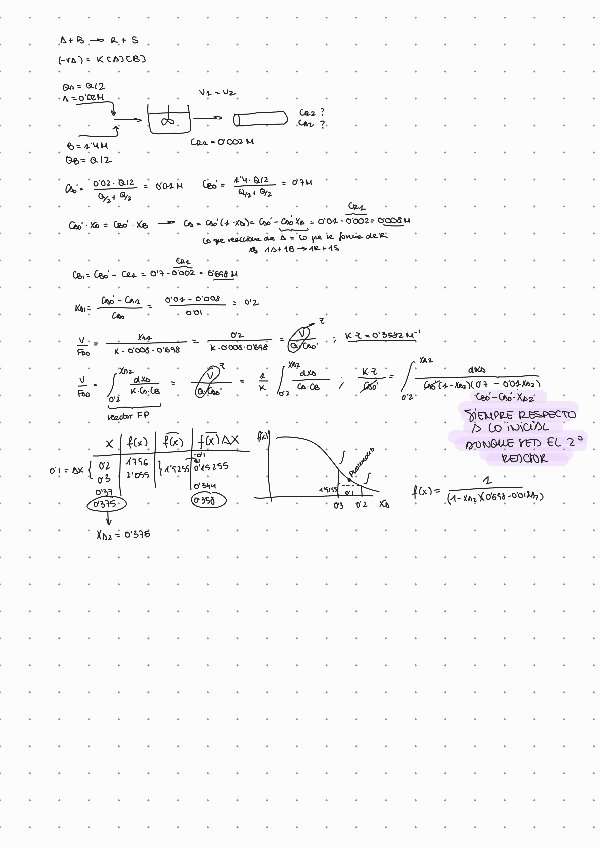 A + B → R + S
(-rA) = K [A][B]
QA = Q/2
A = 0'02M
V1 = V2
CR2 ?
CA2 ?
B = 1'4M
QB = Q/2
CR1 = 0'002M
CA0' = 0'02 · Q/2 / Q/2 + Q/2 = 0'01M    CB0' = 1'4 · Q/2 / Q/2 + Q/2 = 0'7M
CR1
CA0' · XA = CB0' · XB → CA = CA0'(1 - XA) = CA0' - CA0' XA = 0'01 - 0'002 = 0'008M
Lo que reacciona de A = Lo que se forma de R
1A + 1B → 1R + 1S
CR1
CB1 = CB0' - CR1 = 0'7 - 0'002 = 0'698M
XA1 = CA0' - CA1 / CA0 = 0'01 - 0'008 / 0'01 = 0'2
V / FA0 = XA1 / K · 0'008 · 0'698 = 0'2 / K · 0'008 · 0'698 = V / Q · CA0' τ ; K τ = 0'3582 M⁻¹
V / FA0 = ∫ 0'2 XA2 dXA / K · CA · CB = V / Q · CA0' τ = 1 / K ∫ 0'2 XA2 dXA / CA · CB ; K τ / CA0' = ∫ 0'2 XA2 dXA / CA0'(1 - XA2)(0'7 - 0'01XA2)
reactor FP
CB0' - CA0' · XA2
SIEMPRE RESPECTO
A LO INICIAL
AUNQUE SEA EL 2º
REACTOR
X f(x) f(x) f(x) ΔX
0'1 = ΔX
0'2 1'796 1'9255 0'19255
0'3 2'055
0'37 0'344
0'375 0'358
XA2 = 0'375
f(x)
1'9255
0'1
0'3 0'2 XA
f(x) = 1 / (1 - XA2)(0'698 - 0'01XA2)